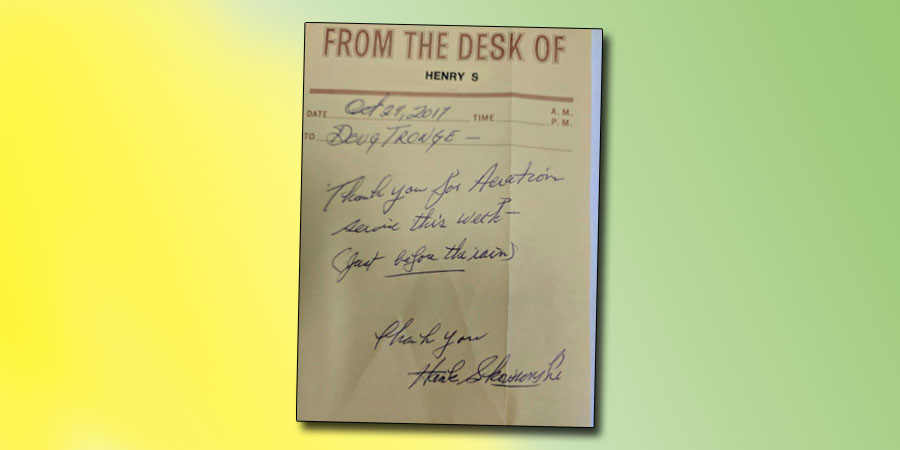 FROM THE DESK OF
HENRY S
DATE Oct 29, 2017 TIME A.M.
P.M.
TO Doug Tronge —
Thank you for Aeration
service this week —
(Just before the rain)
Thank you
Hank